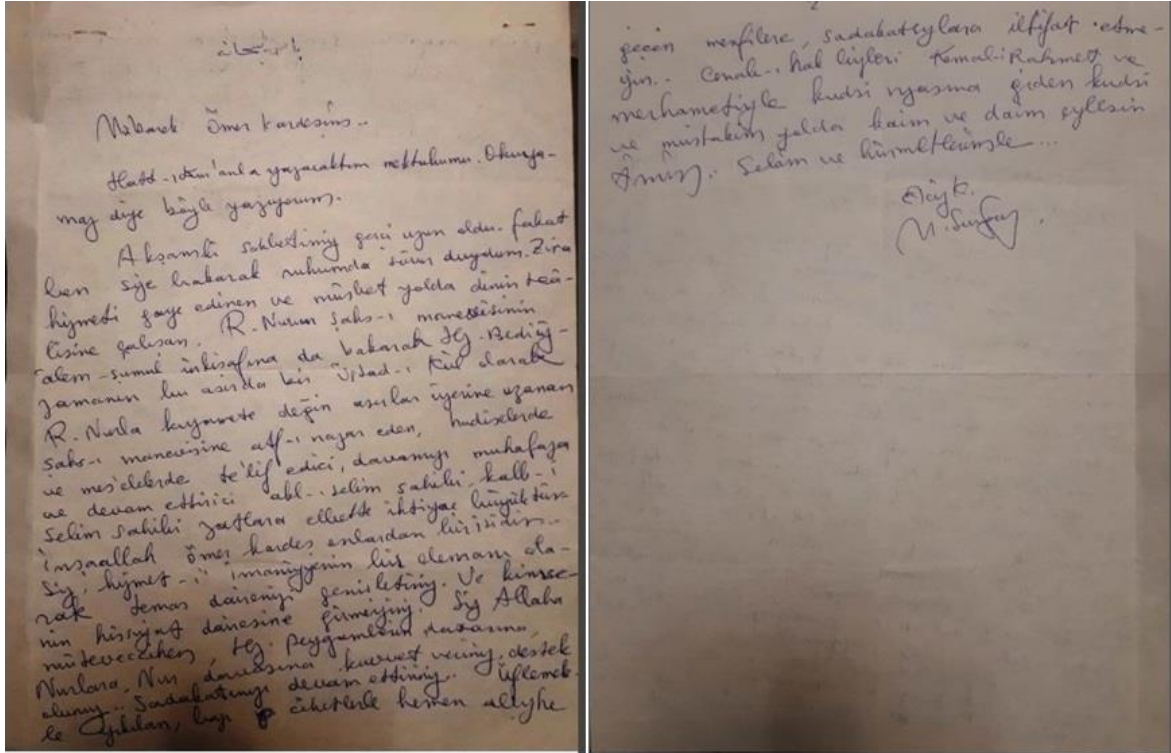 باسمه سبحانه
Mübarek Ömer kardeşim..
Hatt-ı Kur'anla yazacaktım mektubumu. Okuya-
maz diye böyle yazıyorum.
Akşamki sohbetimiz gerçi uzun oldu. fakat
ben size bakarak ruhumda sürur duydum. Zira
hizmeti gaye edinen ve müsbet yolda dinin teâ-
lisine çalışan. R. Nurun şahs-ı manevisinin
âlem-şumul inkişafına da bakarak Hz. Bediüz-
zamanın bu asırda bir Üstad-ı Kül olarak
R. Nurla kıyamete değin asırlar üzerine uzanan
şahs-ı manevisine atf-ı nazar eden, hadiselerde
ve mes'elelerde te'lif edici, davamızı muhafaza
ve devam ettirici akl-ı selim sahibi, kalb-i
selim sahibi zatlara elbette ihtiyaç büyüktür.
inşaallah Ömer kardeş onlardan birisidir..
Siz, hizmet-i imaniyenin bir elemanı ola-
rak temas dairenizi genişletiniz. Ve kimse-
nin hissiyat dairesine girmeyiniz. Siz Allaha
müteveccihen, Hz. Peygamberin davasına,
Nurlara, Nur davasına kuvvet veriniz, destek
olunuz.. Sadakatınızı devam ettiriniz.. Üflemek-
le yıkılan, bazı cihetlerle hemen aleyhe
2
geçen menfilere, sadakatsızlara iltifat etme-
yin.. Cenab-ı hak bizleri Kemal-i Rahmet ve
merhametiyle kudsi rızasına giden kudsi
ve müstakim yolda kaim ve daim eylesin
Âmin.. Selâm ve hürmetlerimle...
M. Sungur.